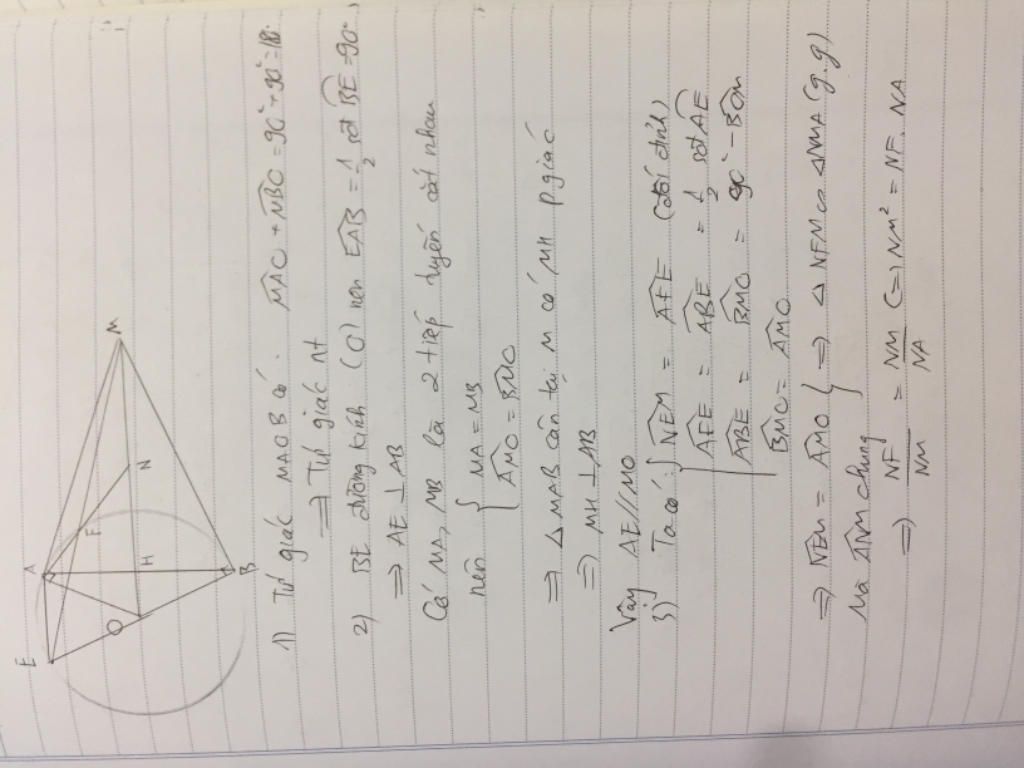 E
A
F
M
O
H
N
B
1) Tứ giác MAOB có: \widehat{MAO} + \widehat{MBO} = 90° + 90° = 180°
=> Tứ giác nt
2) BE đường kính (O) nên \widehat{EAB} = \frac{1}{2} sđ \widehat{BE} = 90°
=> AE ⊥ AB
Có MA, MB là 2 tiếp tuyến cắt nhau
nên { MA = MB
\widehat{AMO} = \widehat{BMO}
=> Δ MAB cân tại M có MH p giác
=> MH ⊥ AB
Vậy AE // MO
3) Ta có: { \widehat{NFM} = \widehat{AFE} (đối đỉnh)
\widehat{AFE} = \widehat{ABE} = \frac{1}{2} sđ \widehat{AE}
\widehat{ABE} = \widehat{BMO} = 90° - \widehat{BOM}
\widehat{BMO} = \widehat{AMO}
=> \widehat{NFM} = \widehat{AMO} } => Δ NFM ∽ ΔNMA (g.g)
Mà \widehat{ANM} chung
=> \frac{NF}{NM} = \frac{NM}{NA} <=> NM² = NF. NA